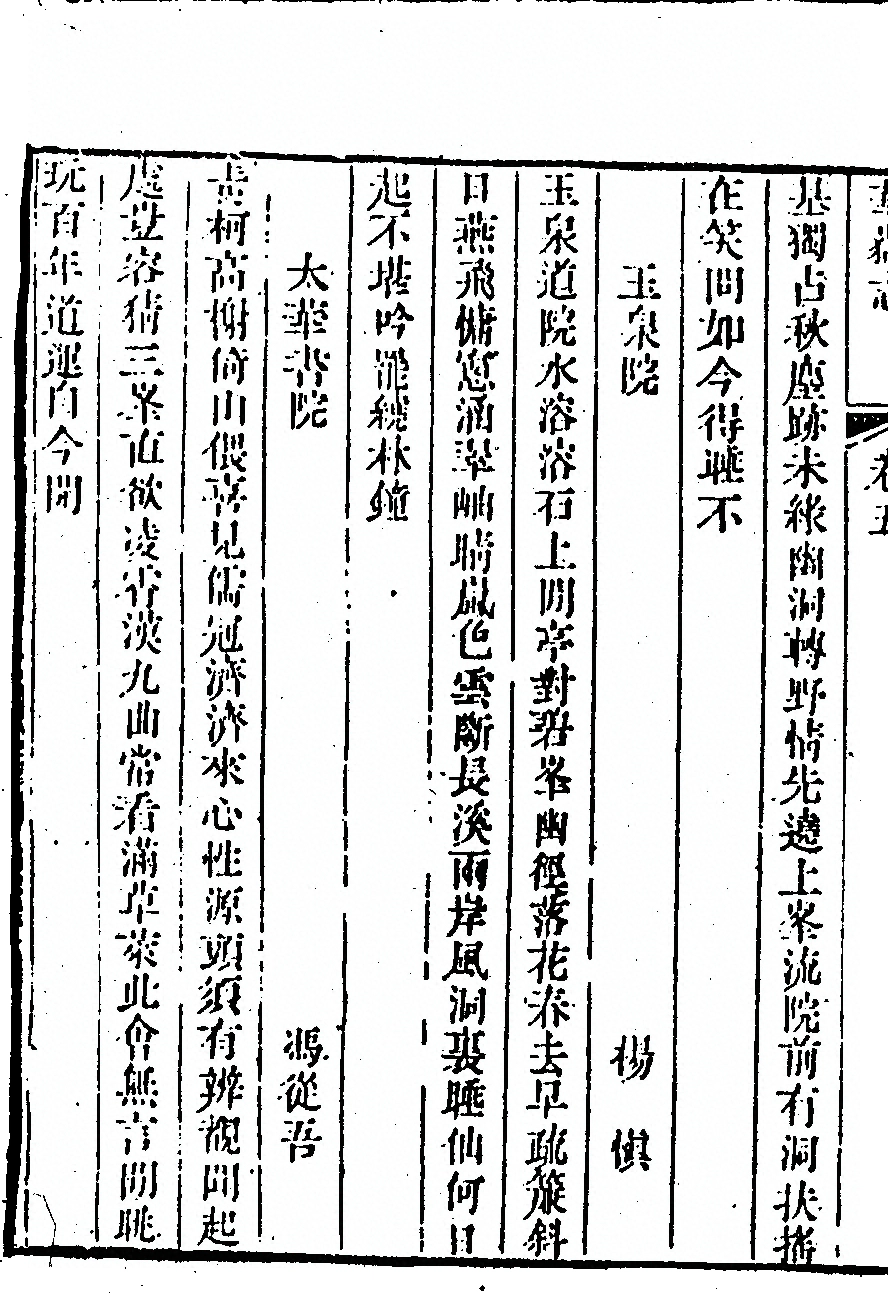 華嶽志 卷五
基獨占秋塵跡未緣幽洞轉野情先遶上峯流院前有洞扶搖
在笑問如今得睡不
玉泉院 楊 俱
玉泉道院水溶溶石上閒亭對碧峯幽徑落花春去早疏簾斜
日燕飛慵窻涵翠岫晴嵐色雲斷長溪兩岸風洞裏睡仙何日
起不堪吟罷繞林鐘
太華書院 馮從吾
古柯高榭倚山偎喜見儒冠濟濟來心性源頭須有辨覩聞起
處豈容猜三峯直欲凌霄漢九曲常看滿草萊此會無言閒眺
玩百年道運自今開